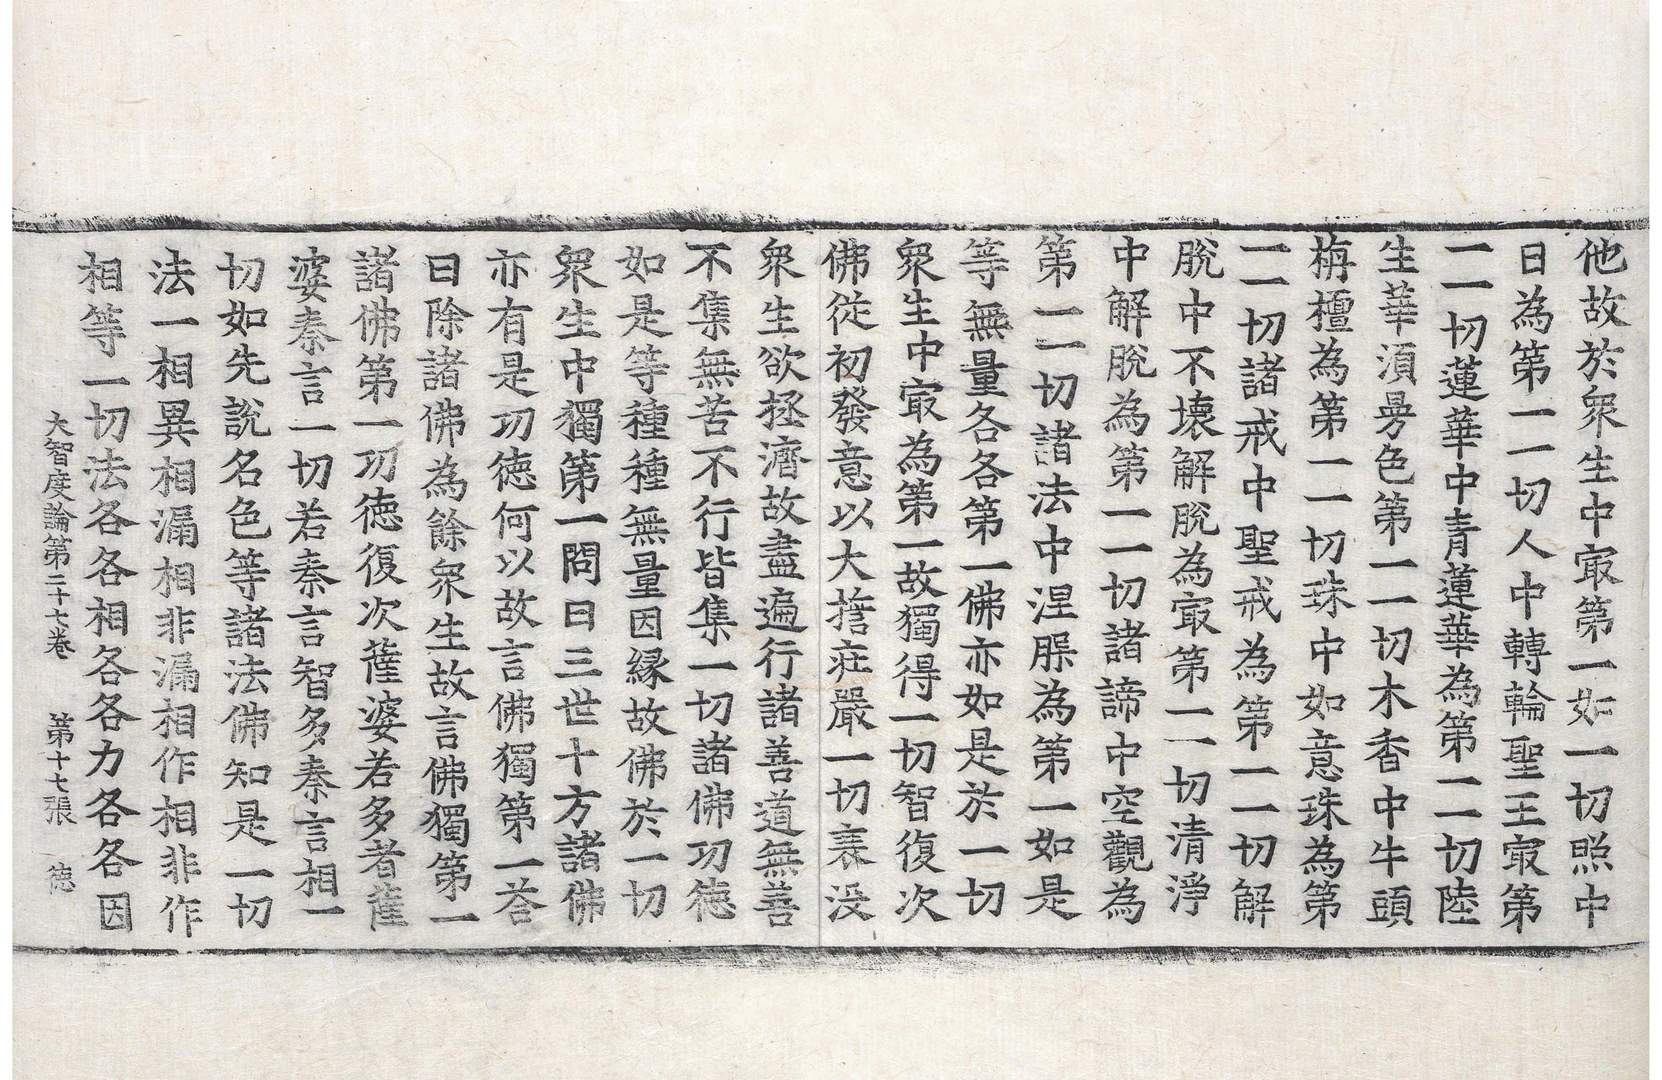 他故於衆生中㝡第一如一切照中
日為第一一切人中轉輪聖王㝡第
一一切蓮華中青蓮華為第一一切陸
生華湏曼色第一一切木香中牛頭
栴檀為第一一切珠中如意珠為第
一一切諸戒中聖戒為第一一切解
脫中不壞解脫為㝡第一一切清淨
中解脫為第一一切諸諦中空觀為
第一一切諸法中涅槃為第一如是
等無量各各第一佛亦如是於一切
衆生中㝡為第一故獨得一切智復次
佛從初發意以大誓莊嚴一切衰沒
衆生欲拯濟故盡遍行諸善道無善
不集無苦不行皆集一切諸佛功德
如是等種種無量因縁故佛於一切
衆生中獨第一問曰三世十方諸佛
亦有是功徳何以故言佛獨第一荅
曰除諸佛為餘衆生故言佛獨第一
諸佛第一功徳復次薩婆若多者薩
婆秦言一切若秦言智多秦言相一
切如先說名色等諸法佛知是一切
法一相異相漏相非漏相作相非作
相等一切法各各相各各力各各因
大智度論第二十七卷 第十七張 徳